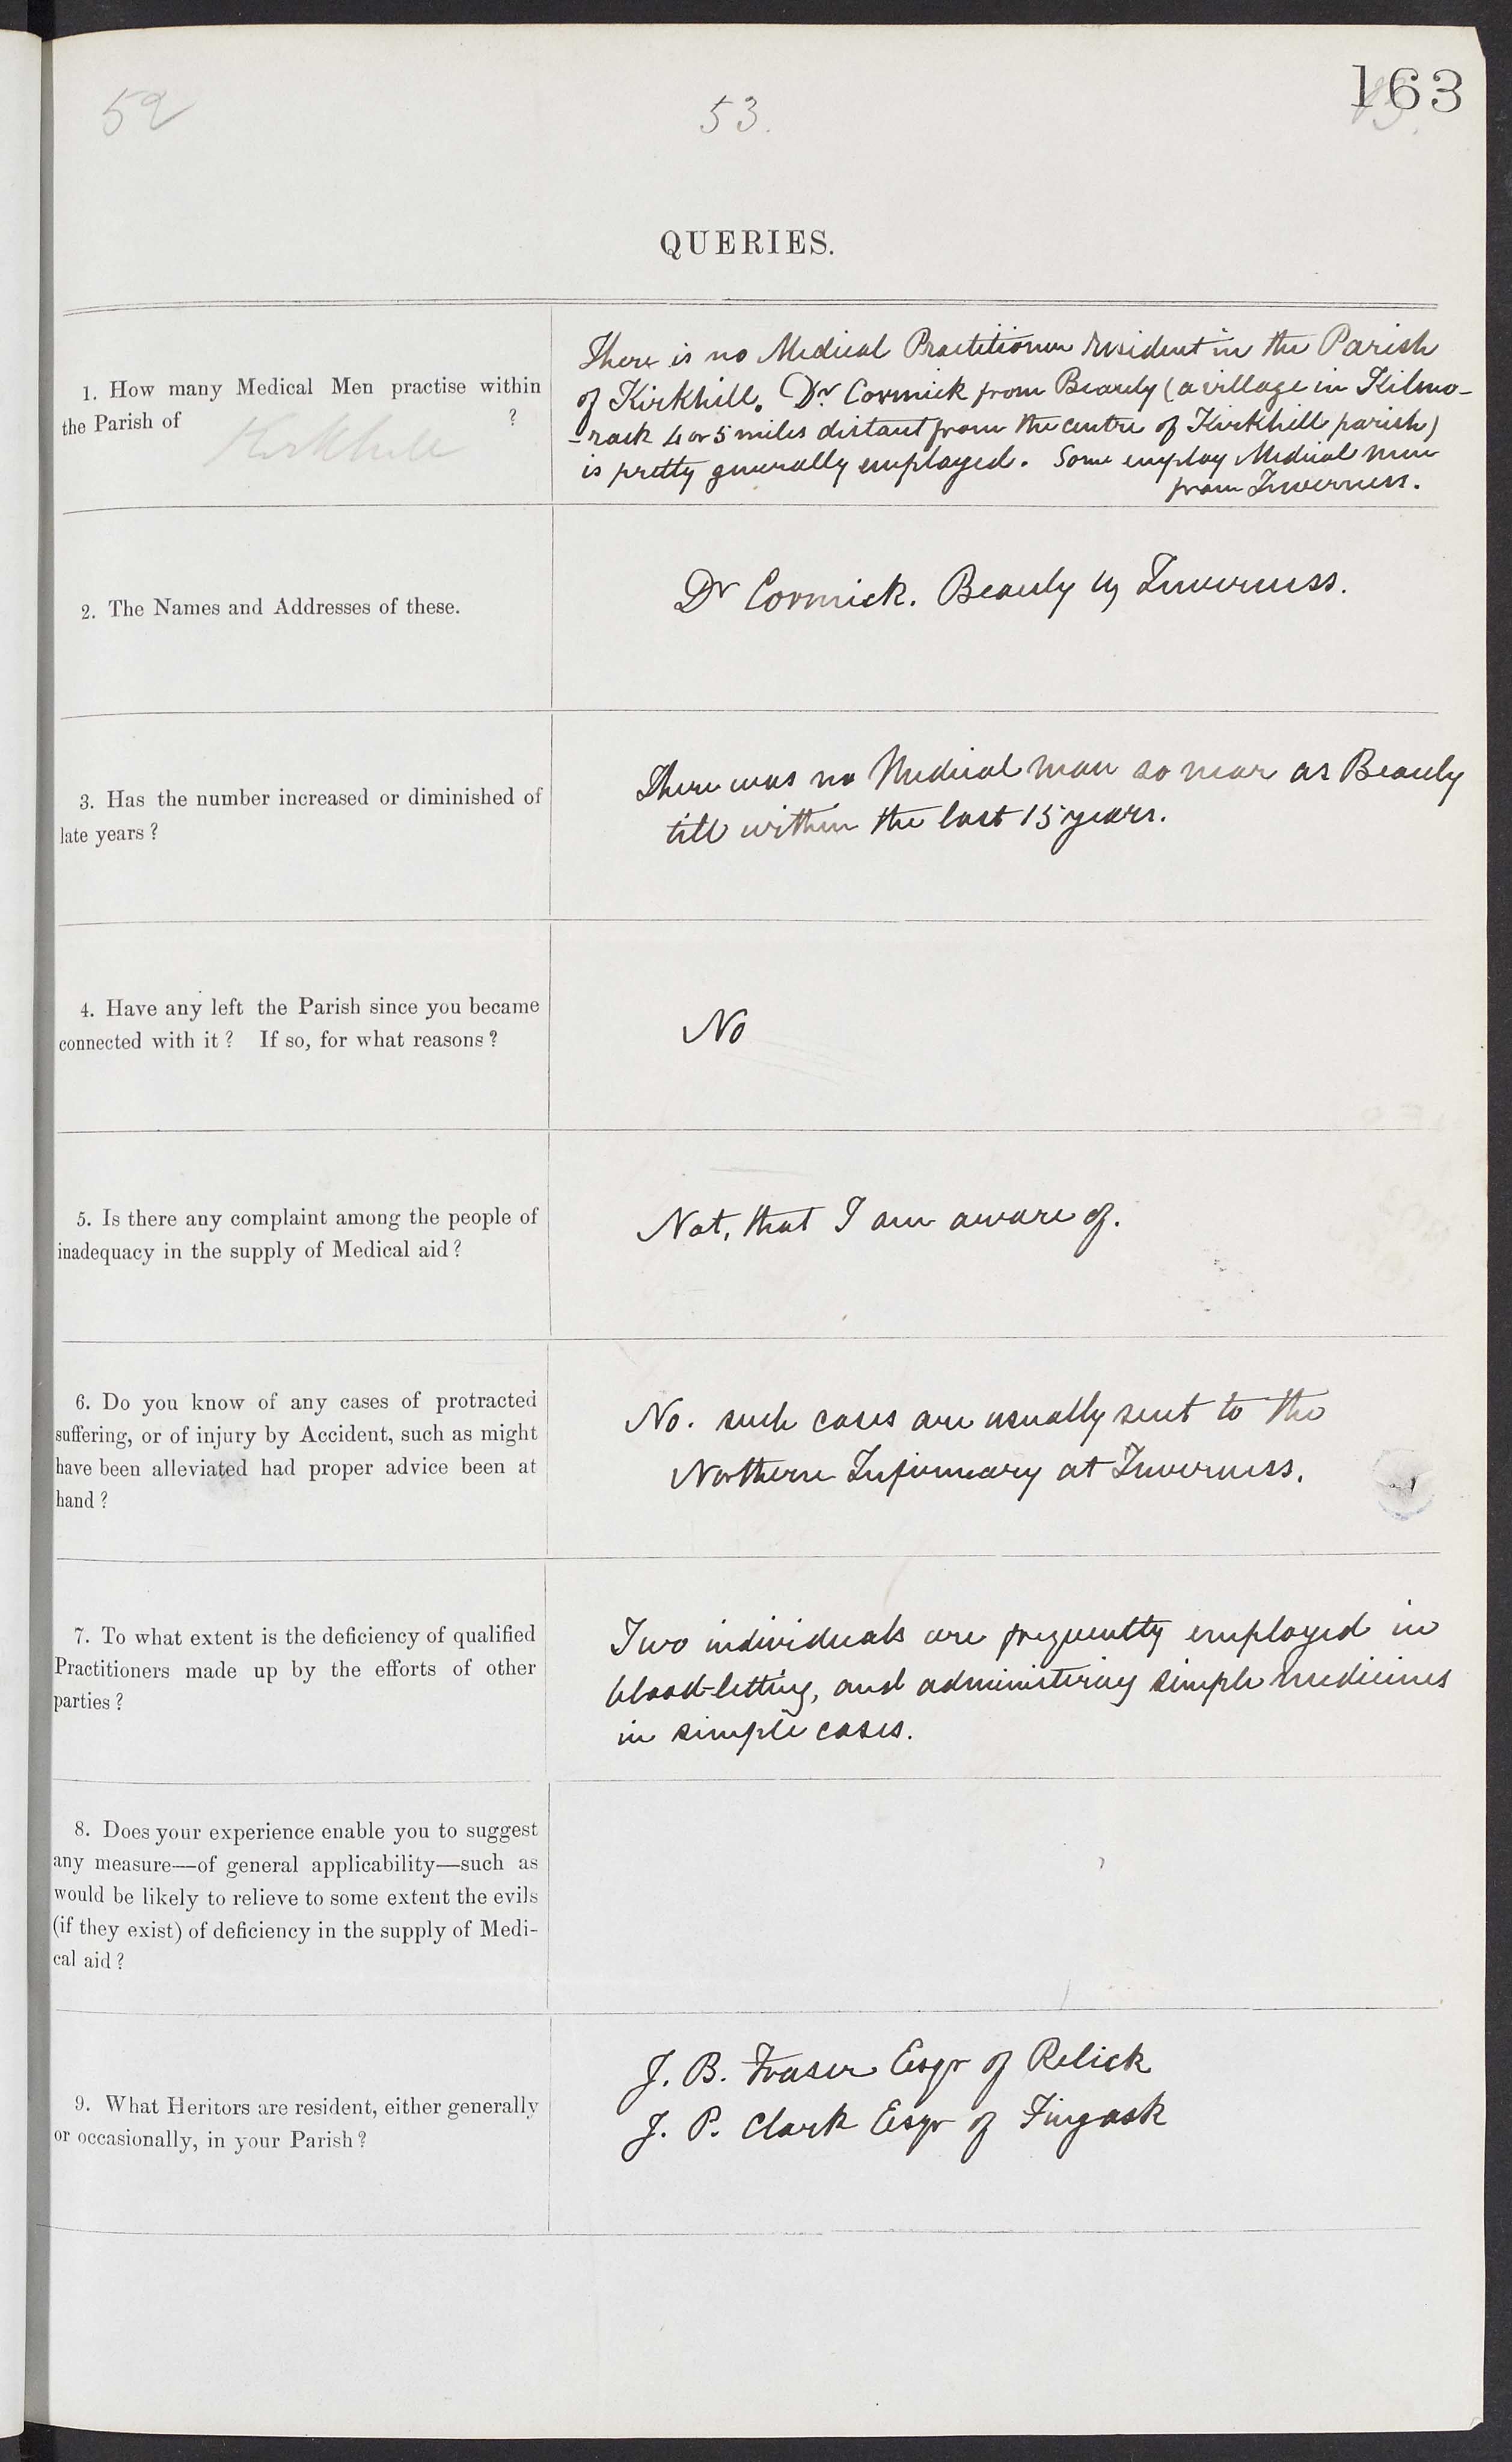 52
53.
163
QUERIES.
1. How many Medical Men practise within
the Parish of Kirkhill ?
There is no Medical Practitioner resident in the Parish
of Kirkhill. Dr Cormick from Beauly (a village in Kilmo-
-rack 4 or 5 miles distant from the centre of Kirkhill parish)
is pretty generally employed. Some employ Medical men
from Inverness.
2. The Names and Addresses of these.
Dr Cormick. Beauly by Inverness.
3. Has the number increased or diminished of
late years ?
There was no Medical man so near as Beauly
till within the last 15 years.
4. Have any left the Parish since you became
connected with it ? If so, for what reasons ?
No
5. Is there any complaint among the people of
inadequacy in the supply of Medical aid ?
Not, that I am aware of.
6. Do you know of any cases of protracted
suffering, or of injury by Accident, such as might
have been alleviated had proper advice been at
hand ?
No. such cases are usually sent to the
Northern Infirmary at Inverness.
7. To what extent is the deficiency of qualified
Practitioners made up by the efforts of other
parties ?
Two individuals are frequently employed in
blood-letting, and administering simple medicines
in simple cases.
8. Does your experience enable you to suggest
any measure—of general applicability—such as
would be likely to relieve to some extent the evils
(if they exist) of deficiency in the supply of Medi-
cal aid ?
9. What Heritors are resident, either generally
or occasionally, in your Parish ?
J. B. Fraser Esqr of Relick
J. P. Clark Esqr of Fingask